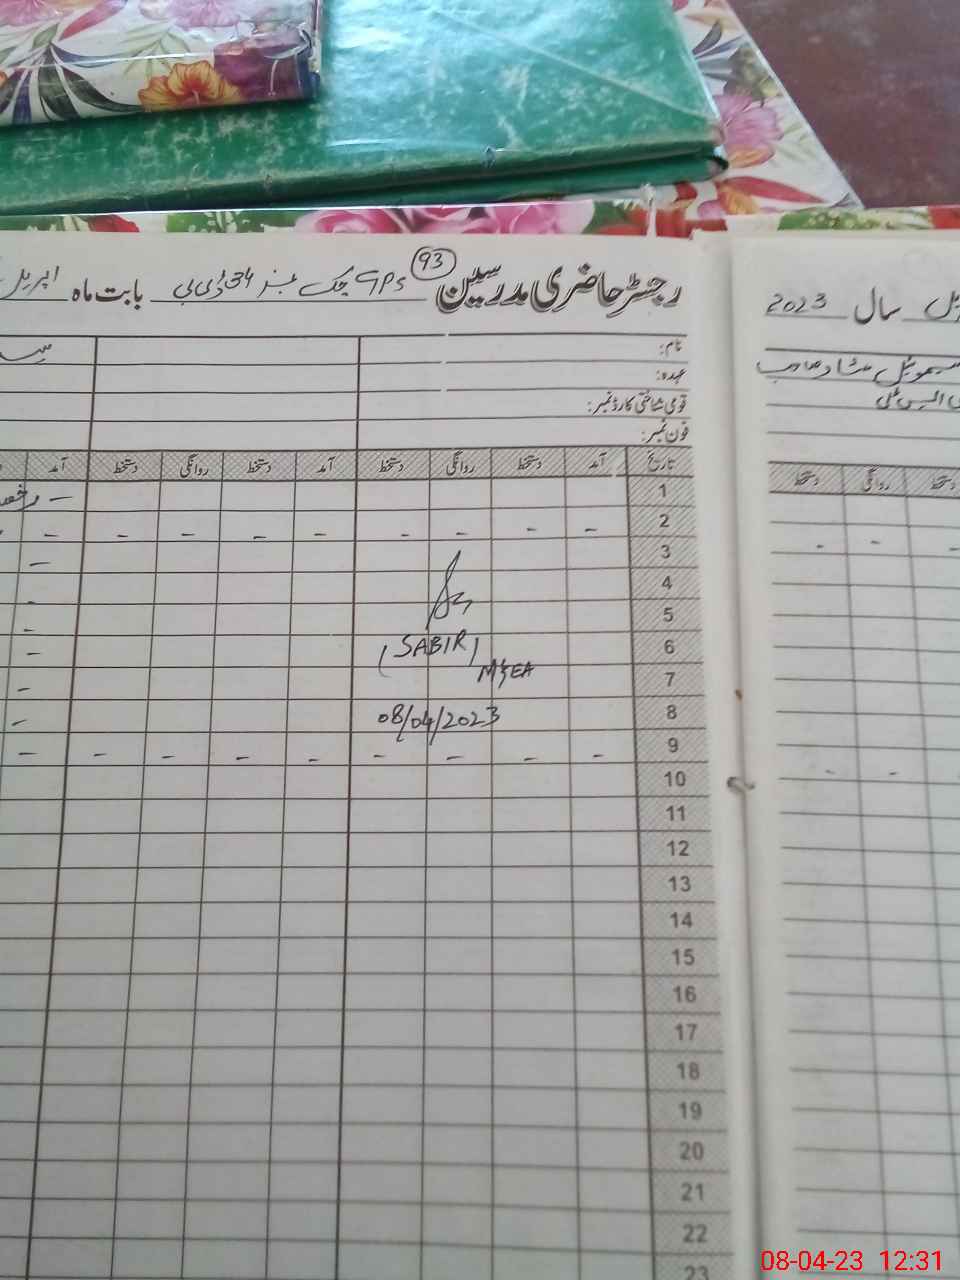 93
رجسٹر حاضری مدرسین GPS چک نمبر 34 ڈی بی بابت ماہ اپریل
سال 2023
نام:
عہدہ:
قومی شناختی کارڈ نمبر:
فون نمبر:
تاریخ آمد دستخط روانگی دستخط آمد دستخط روانگی دستخط آمد
دستخط روانگی دستخط
1
2 - - - - - - - - -
3 -
4 -
5 -
6 -
7 -
8 -
9 - - - - - - - - -
(SABIR)
M&EA
08/04/2023
10
11
12
13
14
15
16
17
18
19
20
21
22
23
08-04-23 12:31